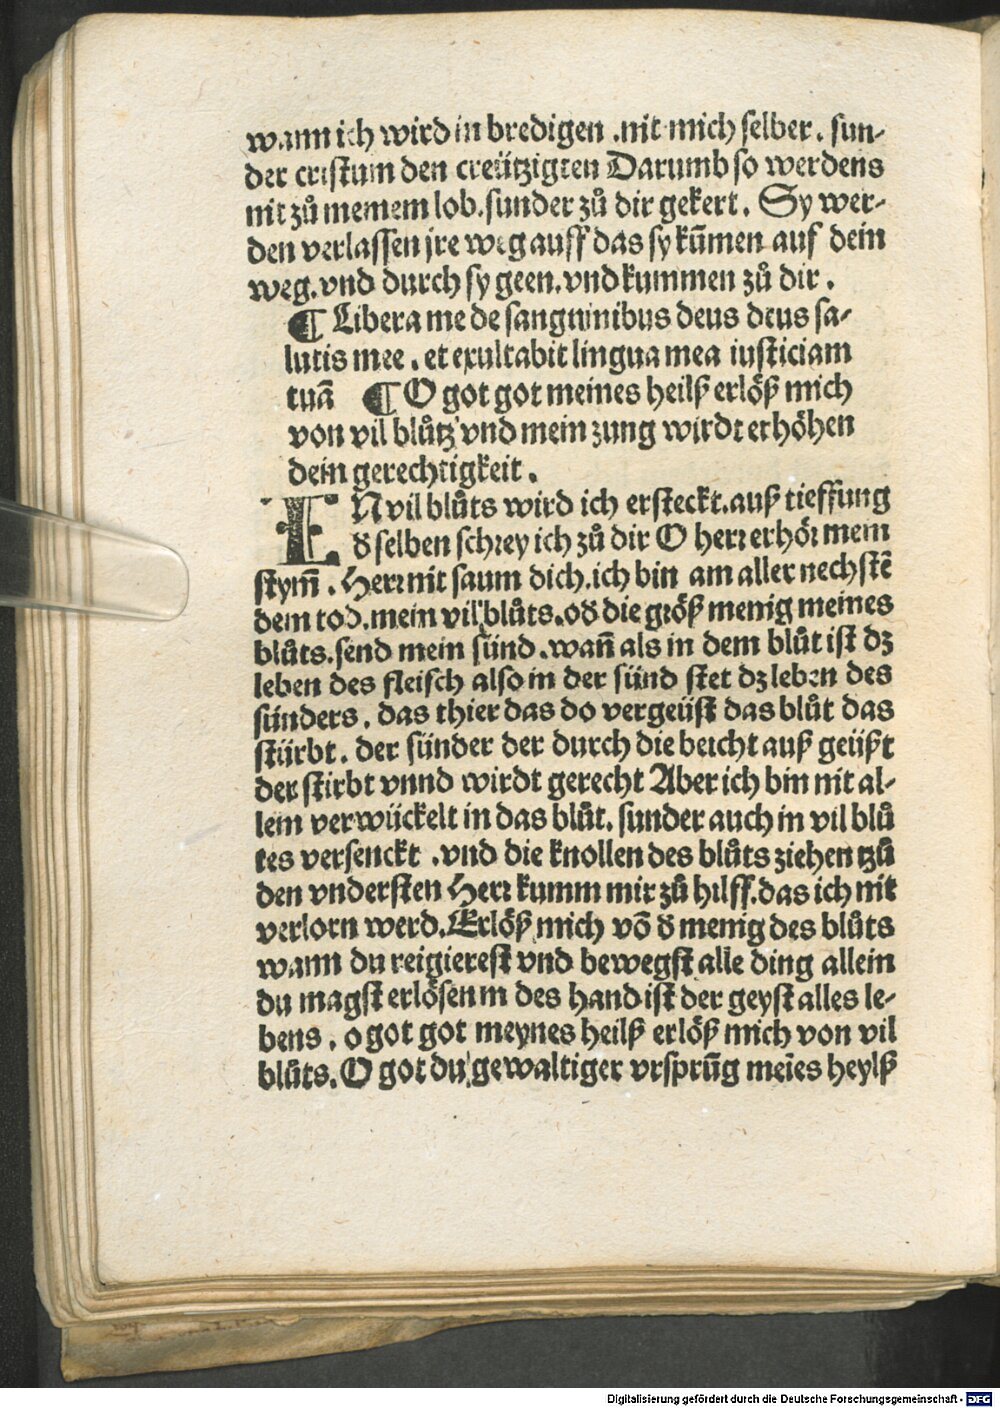 wann ich wird in bredigen .nit mich selber. sun-
der cristum den creützigten Darumb so werdens
nit zů meinem lob.sunder zů dir gekert. Sy wer-
den verlassen jre weg auff das sy kūmen auf dein
weg.vnd durch sy geen.vnd kummen zů dir.
¶ Libera me de sanguinibus deus deus sa-
lutis mee. et exultabit lingua mea iusticiam
tuā ¶ O got got meines heilß erlöß mich
von vil blůtz vnd mein zung wirdt erhöhen
dein gerechtigkeit.
IN vil blůts wird ich ersteckt.auß tieffung
d̕ selben schrey ich zů dir O herr erhör mein
stym̄. Herr nit saum dich.ich bin am aller nechstē
dem tod.mein vil blůts.od̕ die größ menig meines
blůts.send mein sünd.wan̄ als in dem blůt ist dz
leben des fleisch also in der sünd stet dz leben des
sünders. das thier das do vergeüst das blůt das
stürbt. der sünder der durch die beicht auß geüßt
der stirbt vnnd wirdt gerecht Aber ich bin nit al-
lein verwückelt in das blůt. sunder auch in vil blů
tes versenckt .vnd die knollen des blůts ziehen tzů
den vndersten Herr kumm mir zů hilff.das ich nit
verlorn werd.Erlöß mich vō d̕ menig des blůts
wann du reigierest vnd bewegst alle ding allein
du magst erlösen in des hand ist der geyst alles le-
bens. o got got meynes heilß erlöß mich von vil
blůts.O got du gewaltiger vrsprūg meīes heylß
Digitalisierung gefördert durch die Deutsche Forschungsgemeinschaft - DFG